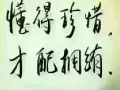 懂得珍惜，
才配拥有。